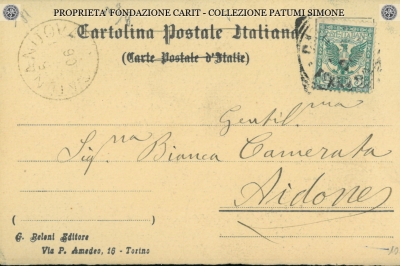 PROPRIETA' FONDAZIONE CARIT - COLLEZIONE PATUMI SIMONE
Cartolina Postale Italiana
(Carte Postale d'Italie)
Gentil.ma
Sig.na Bianca Camerata
Aidone
G. Beloni Editore
Via P. Amedeo, 16 - Torino